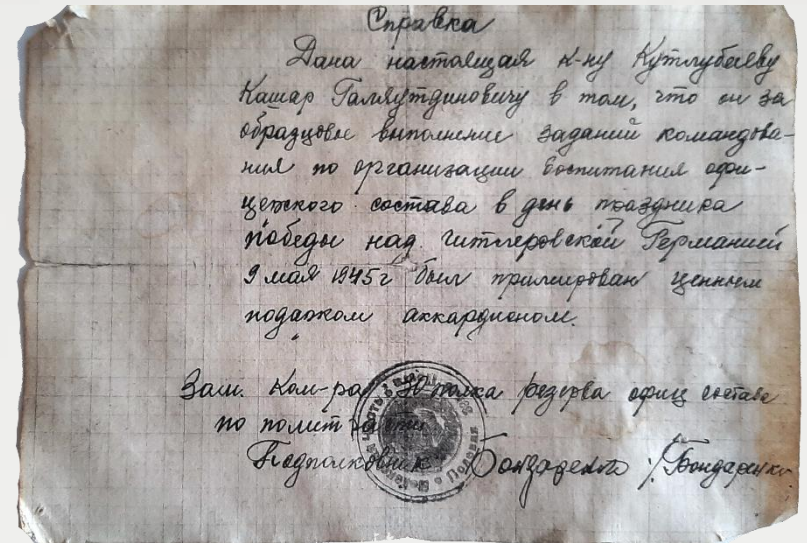 Справка
Дана настоящая к-ну Кутлубаеву
Кашар Галяутдиновичу в том, что он за
образцовое выполнение заданий командова-
ния по организации воспитания офи-
церского состава в день праздника
победы над гитлеровской Германией
9 мая 1945г был премирован ценным
подарком аккардионом.
Зам. Ком-ра полка резерва офиц состава
по полит части
Подполковник Бондаренко /Бондаренко